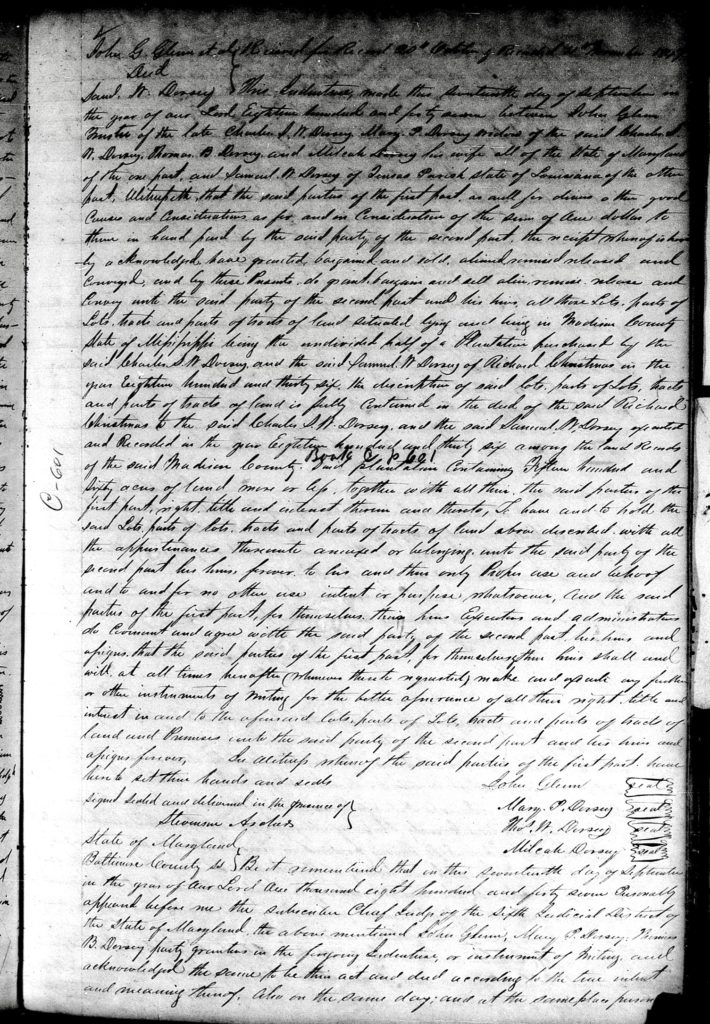 John G. Glenn et al { Received for Record 20th October & Recorded
Deed
Saml. W. Dorsey { This Indenture, made the seventeenth day of September in
the year of our Lord Eighteen hundred and forty seven between John Glenn
Trustee of the late Charles S. W. Dorsey Mary P. Dorsey widow of the said Charles S.
W. Dorsey, Thomas B. Dorsey and Milcah Dorsey his wife all of the State of Maryland
of the one part, and Samuel W. Dorsey of Tensas Parish State of Louisiana of the other
part, Witnesseth that the said parties of the first part, as well for divers other good
Causes and Considerations as for and in Consideration of the sum of One dollar to
them in hand paid by the said party of the second part, the receipt whereof is here-
by acknowledged, have granted, bargained and sold, aliened remised released and
Conveyed, and by these Presents, do grant, bargain and sell alien, remise, release and
Convey unto the said party of the second part and his heirs, all those Lots, parts of
Lots, tracts and parts of tracts of land situated lying and being in Madison County
State of Mississippi being the undivided half of a Plantation purchased by the
said Charles S. W. Dorsey, and the said Samuel W. Dorsey of Richard Christmas in the
year Eighteen hundred and thirty six, the description of said lots, parts of lots, tracts
and parts of tracts of land is fully contained in the deed of the said Richard
Christmas to the said Charles S. W. Dorsey, and the said Samuel W. Dorsey executed
and Recorded in the year Eighteen hundred and thirty six among the land Records
Book C, p 601
of the said Madison County, said plantation Containing Fifteen hundred and
Sixty acres of land more or less, together with all their, the said parties of the
C-601
first part, right, title and interest therein and thereto, To have and to hold the
said Lots, parts of lots, tracts and parts of tracts of land above described, with all
the appurtenances thereunto annexed or belonging, unto the said party of the
second part his heirs forever, to his and their only Proper use and behoof
and to and for no other use intent or purpose whatsoever, And the said
parties of the first part, for themselves, their heirs Executors and administrators
do Covenant and agree with the said party of the second part, his heirs and
assigns, that the said parties of the first part, for themselves, their heirs shall and
will, at all times hereafter (whenever thereto requested) make and execute any further
or other instruments of Writing for the better assurance of all their right, title and
interest in and to the aforesaid lots, parts of Lots, tracts and parts of tracts of
land and Premises unto the said party of the second part and his heirs and
assigns forever, In witness whereof the said parties of the first part have
hereto set their hands and seals
John Glenn seal
Signed sealed and delivered in the presence of }
Mary P. Dorsey seal
Stevenson Archer
Thos. B. Dorsey seal
Milcah Dorsey seal
State of Maryland }
Baltimore County Ss } Be it remembered that on this seventeenth day of September
in the year of Our Lord One thousand eight hundred and forty seven Personally
appeared before me the subscriber Chief Judge of the Sixth Judicial District of
the State of Maryland, the above mentioned John Glenn, Mary P. Dorsey, Thomas
B. Dorsey party grantors in the foregoing Indenture, or instrument of Writing, and
acknowledged the same to be their act and deed according to the true intent
and meaning thereof, Also on the same day, and at the same place